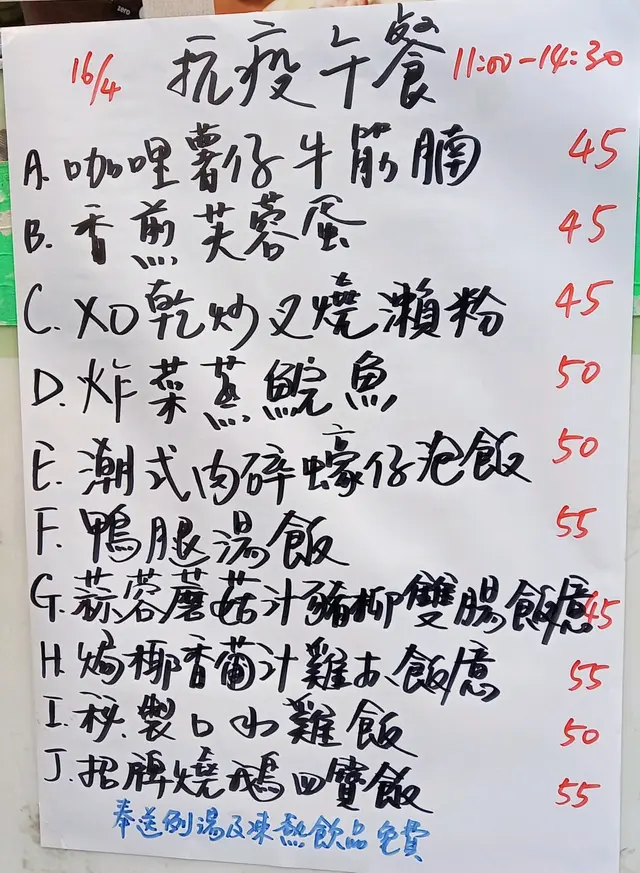 16/4 抗疫午餐 11:00-14:30
A. 咖哩薯仔牛筋腩 45
B. 香煎芙蓉蛋 45
C. XO乾炒叉燒瀨粉 45
D. 炸菜蒸鯇魚 50
E. 潮式肉碎蠔仔泡飯 50
F. 鴨腿湯飯 55
G. 蒜蓉蘑菇汁豬柳雙腸飯意 45
H. 焗椰香葡汁雞 飯意 55
I. 秘製口水雞飯 50
J. 招牌燒鵝四寶飯 55
奉送例湯及凍熱飲品免費